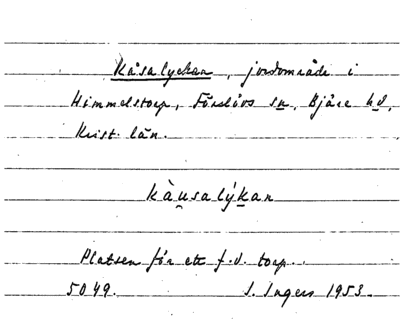 Kåsalyckan, jordområde i
Himmelstorp, Förslövs sn, Bjäre hd,
Krist. län.
kàu̯salýkan
Platsen för ett f.d. torp.
5049. I. Ingers 1953.